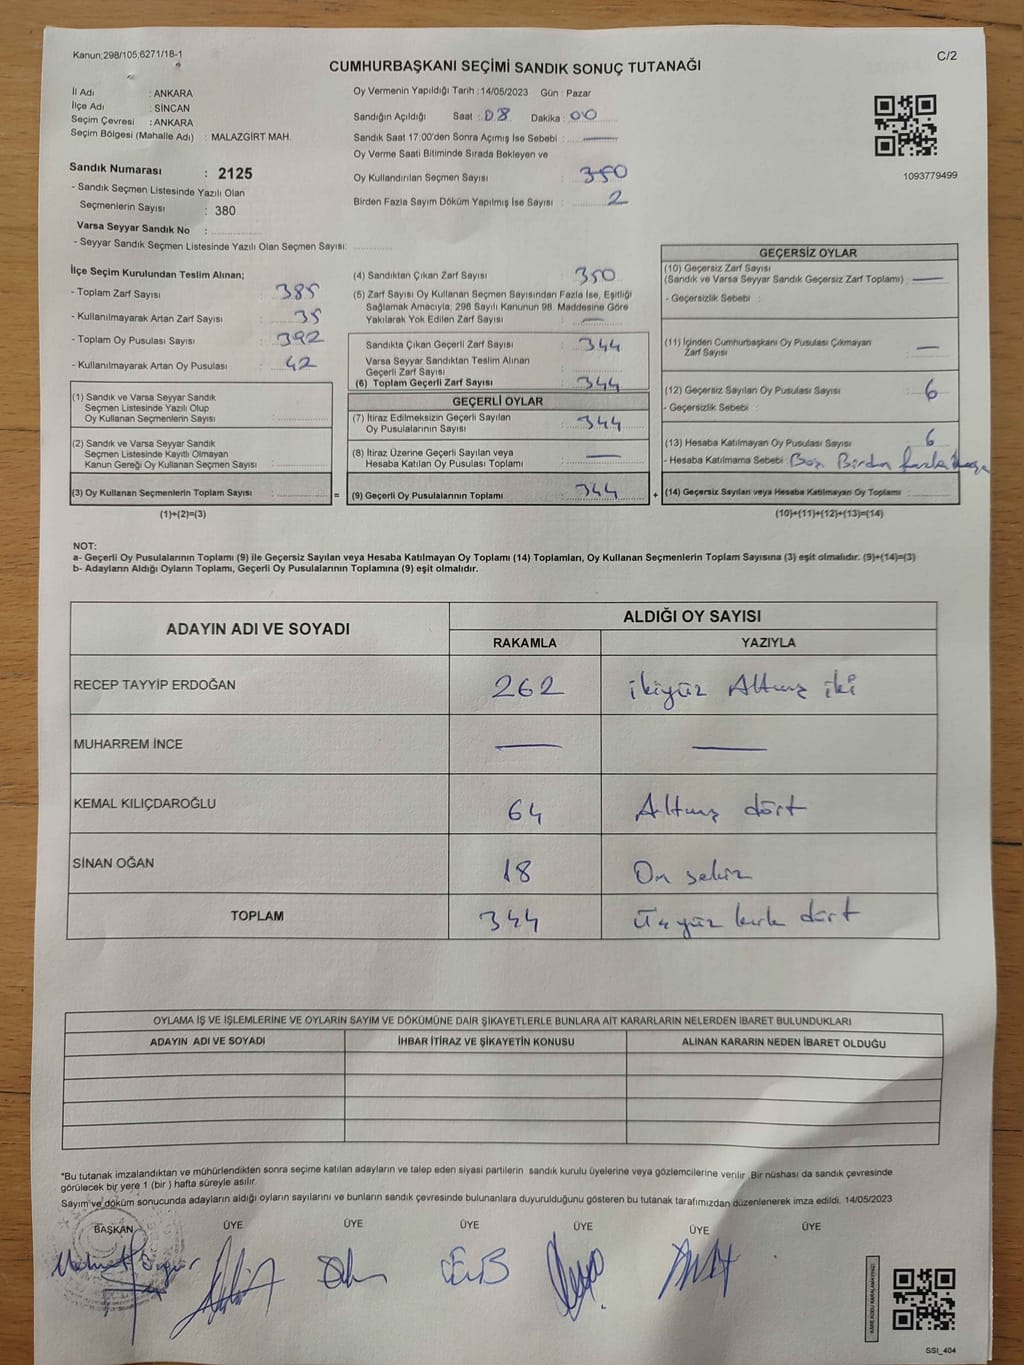 Kanun;298/105;6271/18-1
C/2
CUMHURBAŞKANI SEÇİMİ SANDIK SONUÇ TUTANAĞI
İl Adı : ANKARA
İlçe Adı : SİNCAN
Seçim Çevresi : ANKARA
Seçim Bölgesi (Mahalle Adı) : MALAZGİRT MAH.
Sandık Numarası : 2125
- Sandık Seçmen Listesinde Yazılı Olan
Seçmenlerin Sayısı : 380
Varsa Seyyar Sandık No :
- Seyyar Sandık Seçmen Listesinde Yazılı Olan Seçmen Sayısı:
Oy Vermenin Yapıldığı Tarih : 14/05/2023 Gün : Pazar
Sandığın Açıldığı Saat : 08 Dakika : 00
Sandık Saat 17:00'den Sonra Açımış İse Sebebi : —
Oy Verme Saati Bitiminde Sırada Bekleyen ve
Oy Kullandırılan Seçmen Sayısı : 350
Birden Fazla Sayım Döküm Yapılmış İse Sayısı : 2
1093779499
İlçe Seçim Kurulundan Teslim Alınan;
- Toplam Zarf Sayısı : 385
- Kullanılmayarak Artan Zarf Sayısı : 35
- Toplam Oy Pusulası Sayısı : 392
- Kullanılmayarak Artan Oy Pusulası : 42
(1) Sandık ve Varsa Seyyar Sandık
Seçmen Listesinde Yazılı Olup
Oy Kullanan Seçmenlerin Sayısı :
(2) Sandık ve Varsa Seyyar Sandık
Seçmen Listesinde Kayıtlı Olmayan
Kanun Gereği Oy Kullanan Seçmen Sayısı :
(3) Oy Kullanan Seçmenlerin Toplam Sayısı :
(1)+(2)=(3)
(4) Sandıktan Çıkan Zarf Sayısı : 350
(5) Zarf Sayısı Oy Kullanan Seçmen Sayısından Fazla İse, Eşitliği
Sağlamak Amacıyla; 298 Sayılı Kanunun 98. Maddesine Göre
Yakılarak Yok Edilen Zarf Sayısı : —
Sandıkta Çıkan Geçerli Zarf Sayısı : 344
Varsa Seyyar Sandıktan Teslim Alınan
Geçerli Zarf Sayısı :
(6) Toplam Geçerli Zarf Sayısı : 344
GEÇERLİ OYLAR
(7) İtiraz Edilmeksizin Geçerli Sayılan
Oy Pusulalarının Sayısı : 344
(8) İtiraz Üzerine Geçerli Sayılan veya
Hesaba Katılan Oy Pusulası Toplamı : —
= (9) Geçerli Oy Pusulalarının Toplamı : 344 +
GEÇERSİZ OYLAR
(10) Geçersiz Zarf Sayısı
(Sandık ve Varsa Seyyar Sandık Geçersiz Zarf Toplamı) : —
- Geçersizlik Sebebi :
(11) İçinden Cumhurbaşkanı Oy Pusulası Çıkmayan
Zarf Sayısı : —
(12) Geçersiz Sayılan Oy Pusulası Sayısı : 6
- Geçersizlik Sebebi :
(13) Hesaba Katılmayan Oy Pusulası Sayısı : 6
- Hesaba Katılmama Sebebi : Boş Birden fazla
(14) Geçersiz Sayılan veya Hesaba Katılmayan Oy Toplamı :
(10)+(11)+(12)+(13)=(14)
NOT:
a- Geçerli Oy Pusulalarının Toplamı (9) ile Geçersiz Sayılan veya Hesaba Katılmayan Oy Toplamı (14) Toplamları, Oy Kullanan Seçmenlerin Toplam Sayısına (3) eşit olmalıdır. (9)+(14)=(3)
b- Adayların Aldığı Oyların Toplamı, Geçerli Oy Pusulalarının Toplamına (9) eşit olmalıdır.
ADAYIN ADI VE SOYADI ALDIĞI OY SAYISI
RAKAMLA YAZIYLA
RECEP TAYYİP ERDOĞAN 262 ikiyüz Altmış iki
MUHARREM İNCE — —
KEMAL KILIÇDAROĞLU 64 Altmış dört
SİNAN OĞAN 18 On sekiz
TOPLAM 344 Üçyüz kırk dört
OYLAMA İŞ VE İŞLEMLERİNE VE OYLARIN SAYIM VE DÖKÜMÜNE DAİR ŞİKAYETLERLE BUNLARA AİT KARARLARIN NELERDEN İBARET BULUNDUKLARI
ADAYIN ADI VE SOYADI İHBAR İTİRAZ VE ŞİKAYETİN KONUSU ALINAN KARARIN NEDEN İBARET OLDUĞU
*Bu tutanak imzalandıktan ve mühürlendikten sonra seçime katılan adayların ve talep eden siyasi partilerin sandık kurulu üyelerine veya gözlemcilerine verilir. Bir nüshası da sandık çevresinde
görülecek bir yere 1 (bir ) hafta süreyle asılır.
Sayım ve döküm sonucunda adayların aldığı oyların sayılarını ve bunların sandık çevresinde bulunanlara duyurulduğunu gösteren bu tutanak tarafımızdan düzenlenerek imza edildi. 14/05/2023
BAŞKAN ÜYE ÜYE ÜYE ÜYE ÜYE ÜYE
SSI_404